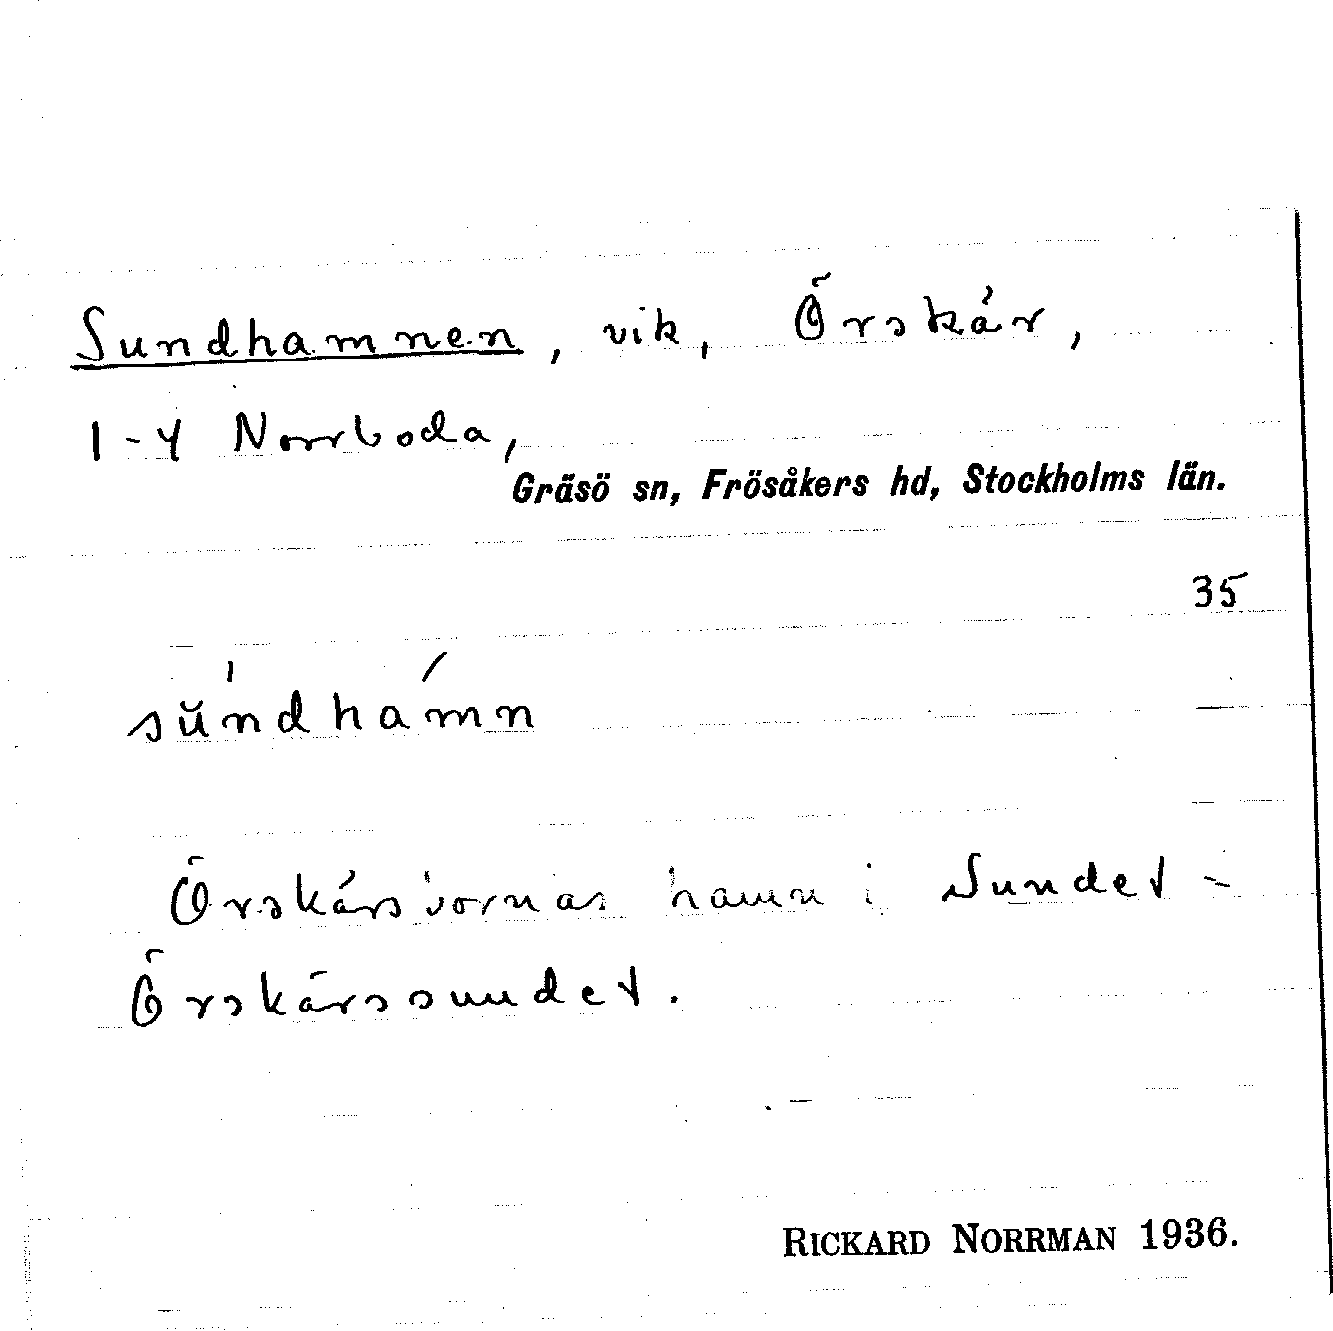 Sundhamnen, vik, Örskär,
1-4 Norrboda,
Gräsö sn, Frösåkers hd, Stockholms län.
35
sŭ́ndhámn
Örskärsbornas hamn i Sundet -
Örskärssundet.
RICKARD NORRMAN 1936.